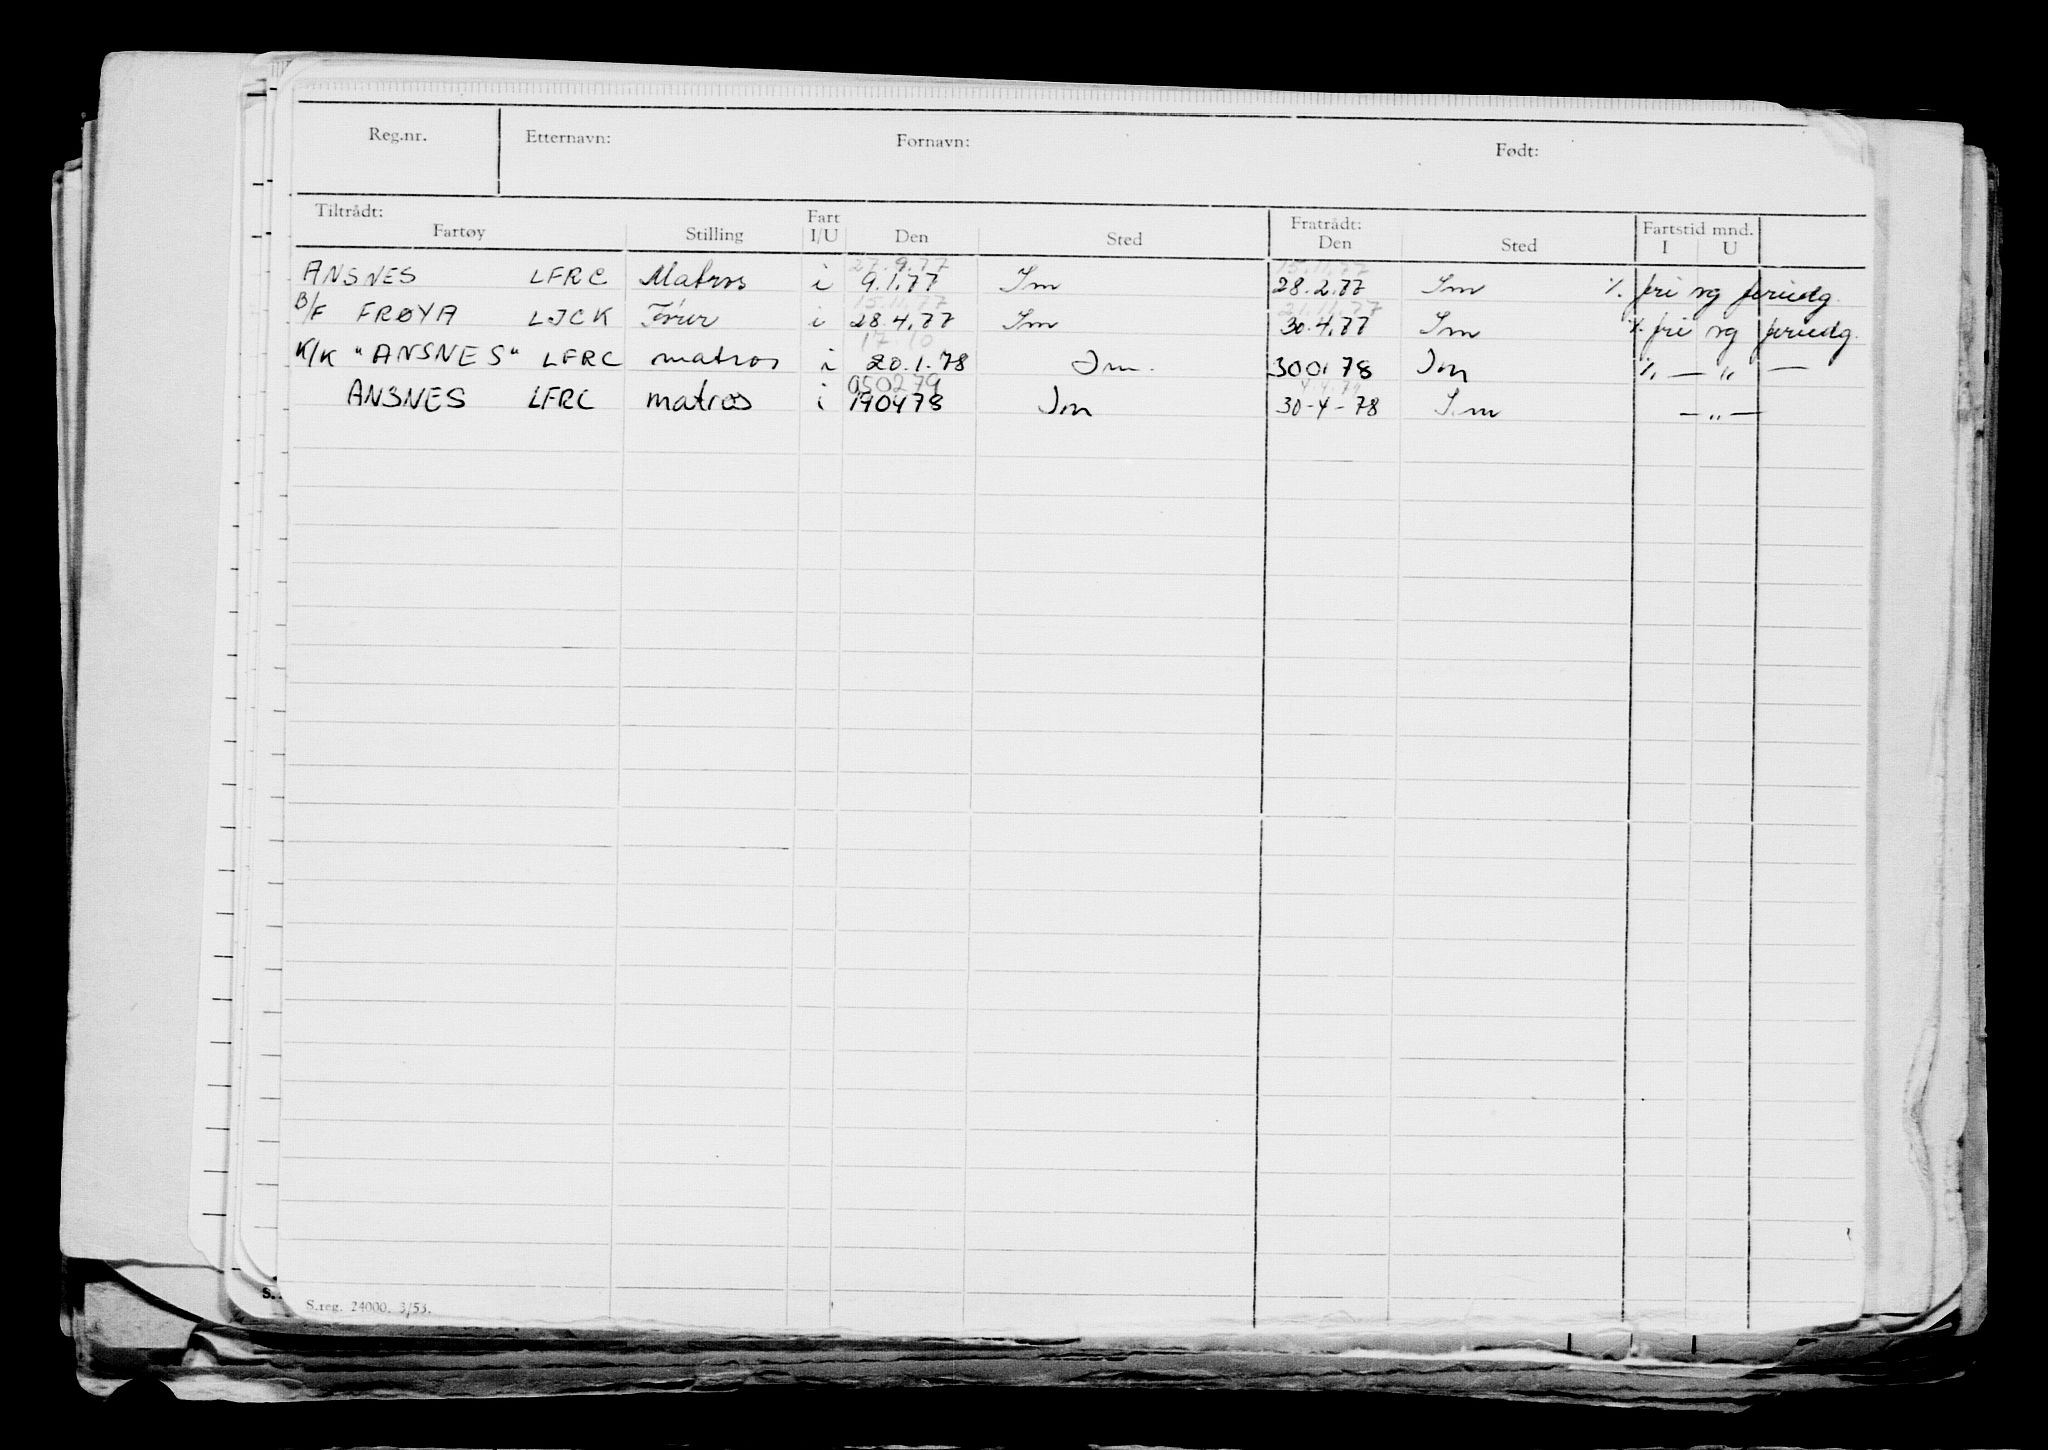 Reg.nr. Etternavn: Fornavn: Født:
Tiltrådt: Fratrådt:
Fartøy Stilling Fart I/U Den Sted Den Sted Fartstid mnd. I U
27.9.77 15.11.77
ANSNES LFRC Matros i 9.1.77 Im 28.2.77 Im % fri og feriedg.
15.11.77 21.11.77
B/F FRØYA LJCK i 28.4.77 Im 30.4.77 Im % fri og feriedg.
17.10
K/K "ANSNES" LFRC matros i 20.1.78 Im. 300178 Im % — " —
050279 4.4.79
ANSNES LFRC matros i 190478 Im 30-4-78 Im — " —
S.reg. 24000. 3/53.
S.